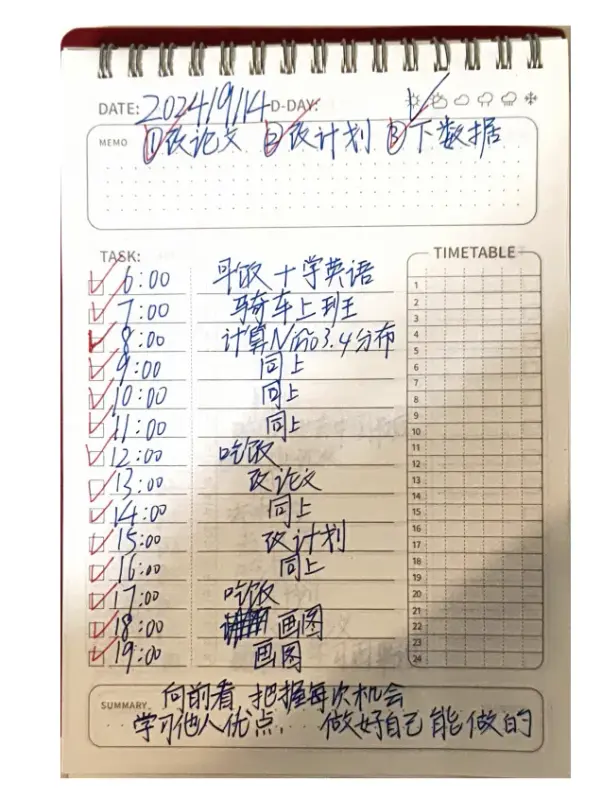 DATE: 2024/9/14 D-DAY:
MEMO ①改论文 ②改计划 ③下数据
TASK:
TIMETABLE
6:00 早饭+学英语
7:00 骑车上班
8:00 计算N 3.4分布
9:00 同上
10:00 同上
11:00 同上
12:00 吃饭
13:00 改论文
14:00 同上
15:00 改计划
16:00 同上
17:00 吃饭
18:00 画图
19:00 画图
1
2
3
4
5
6
7
8
9
10
11
12
13
14
15
16
17
18
19
20
21
22
23
24
SUMMARY 向前看 把握每次机会
学习他人优点, 做好自己能做的